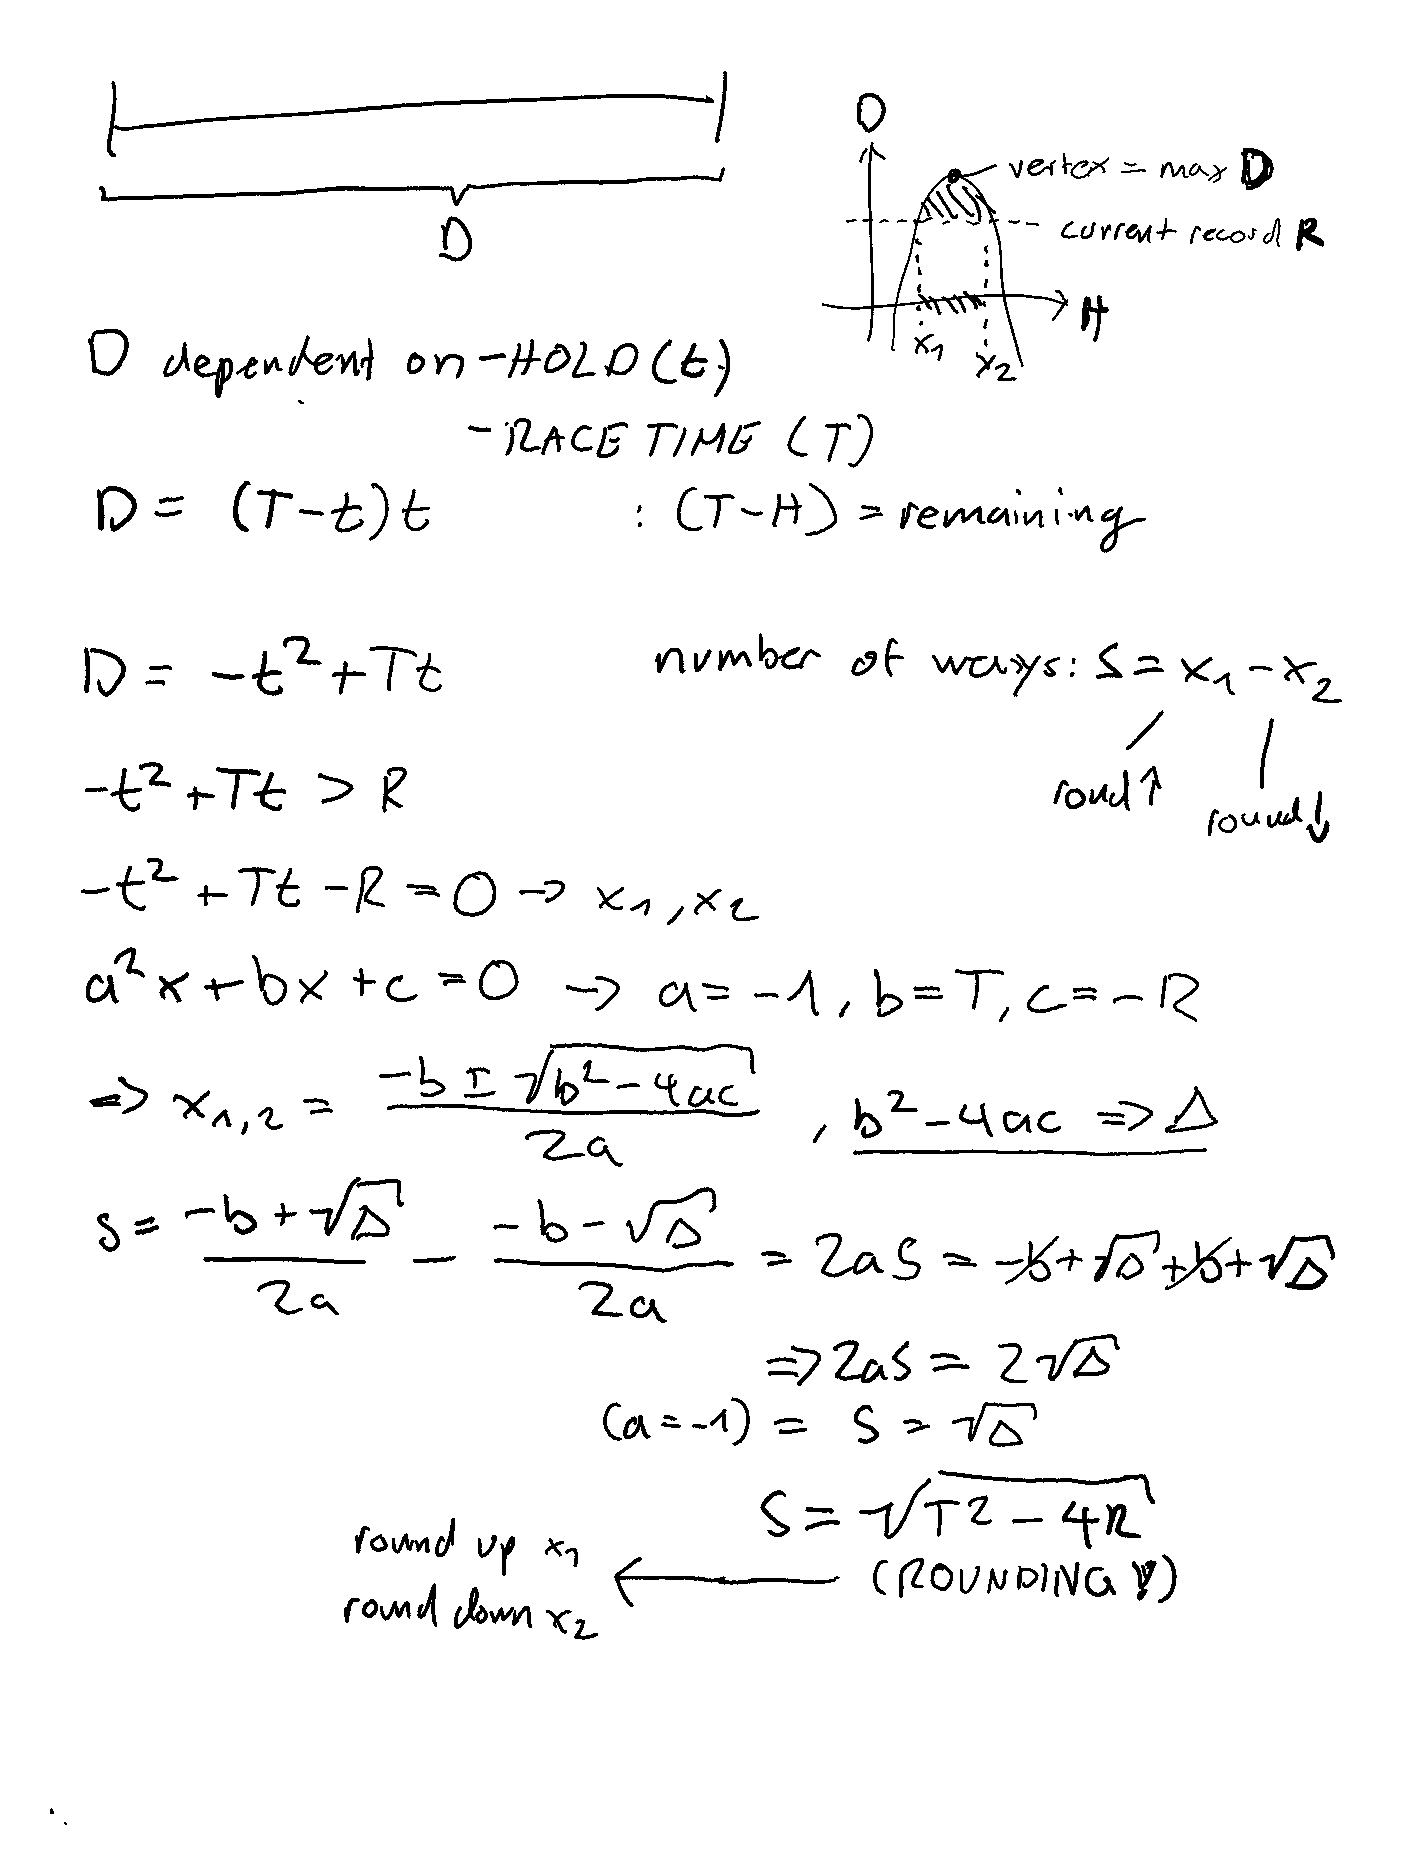 D
D
vertex = max D
current record R
H
x₁
x₂
D dependent on - HOLD (t)
- RACE TIME (T)
D = (T-t)t : (T-H) = remaining
D = -t² + Tt number of ways: S = x₁ - x₂
round ↑
round ↓
-t² + Tt > R
-t² + Tt - R = 0 → x₁, x₂
a²x + bx + c = 0 → a = -1, b = T, c = -R
=> x₁,₂ = (-b ± √(b² - 4ac)) / 2a , b² - 4ac => Δ
S = (-b + √Δ) / 2a - (-b - √Δ) / 2a = 2aS = -b + √Δ + b + √Δ
=> 2aS = 2√Δ
(a = -1) = S = √Δ
S = √(T² - 4R)
(ROUNDING !)
round up x₁
round down x₂